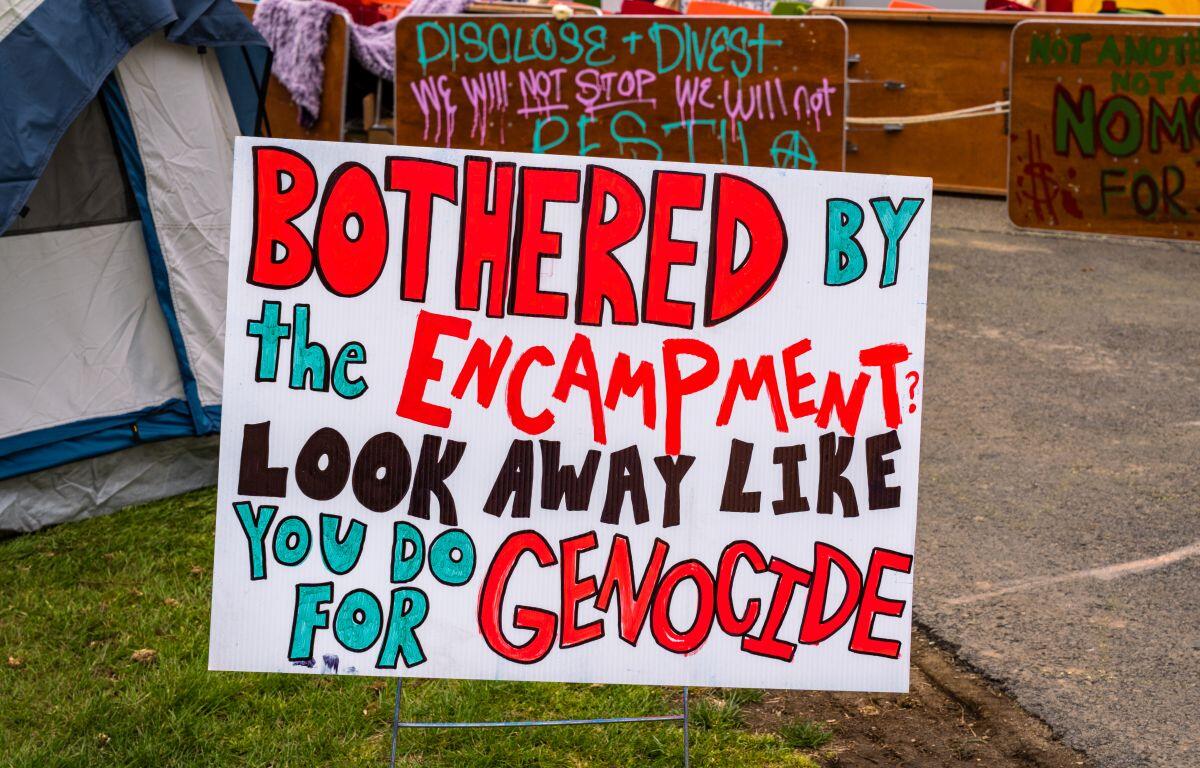 DISCLOSE + DIVEST
WE WILL NOT STOP WE WILL not
NOT
NOT A
FOR
BOTHERED BY
the ENCAMPMENT?
LOOK AWAY LIKE
YOU DO GENOCIDE
FOR